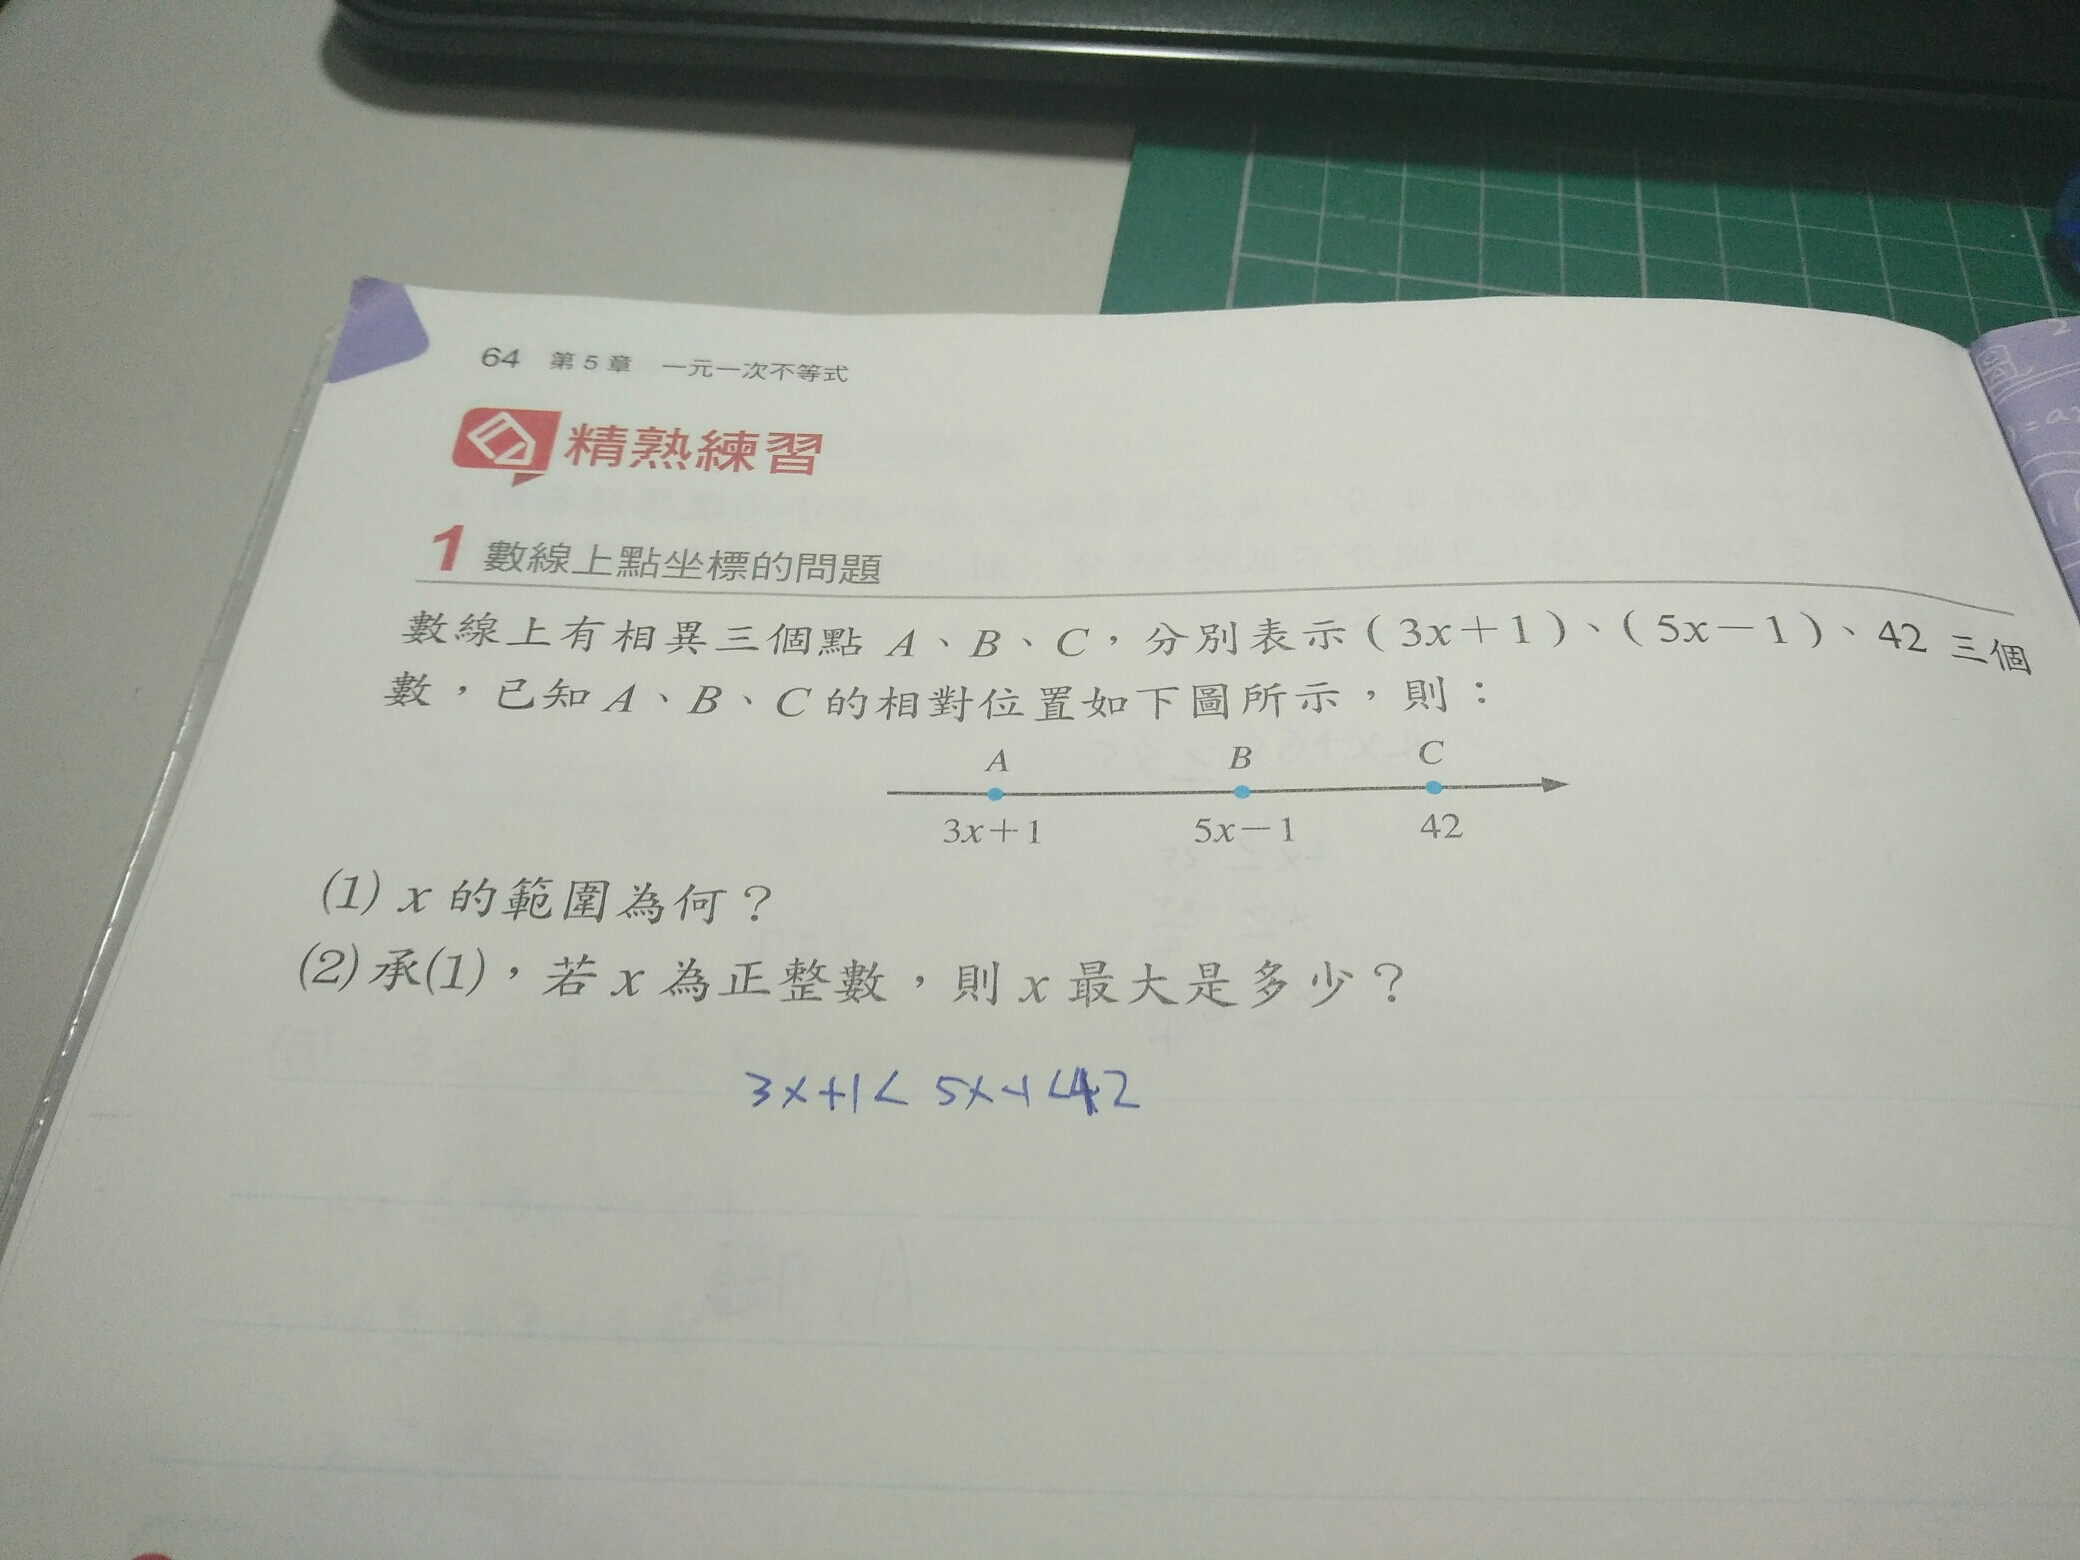 64 第5章 一元一次不等式
精熟練習
1 數線上點坐標的問題
數線上有相異三個點 A、B、C，分別表示（3x＋1）、（5x－1）、42 三個
數，已知 A、B、C 的相對位置如下圖所示，則：
A B C
3x＋1 5x－1 42
(1) x 的範圍為何？
(2) 承(1)，若 x 為正整數，則 x 最大是多少？
3x+1< 5x-1<42